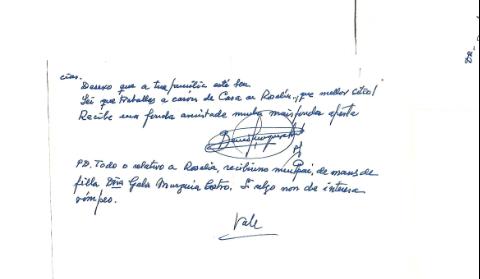 cias.
Desexo que a tua familia esté ben.
Sei que traballas a carón de Casa de Rosalía, ¡que melhor sitio!
Recibe una fonda amistade munha mais fonda aperta
P.D. Todo o relativo a Rosalía, recibiuno meu pai, de maus de
filla Dña Gala Murguía Castro. Si algo non che interesa
rómpeo.
Vale